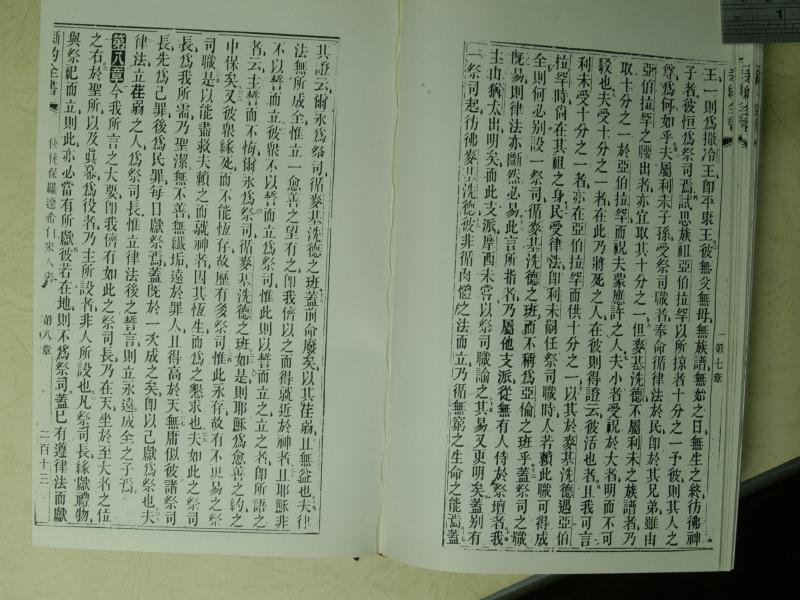 第七章
王一則爲撒冷王卽平康王彼無父無母無族譜無始之日無生之終彷彿神
子者彼恒爲祭司焉試思族祖亞伯拉罕以所掠者十分之一予彼則其人之
尊爲何如乎夫屬利未子孫受祭司職者奉命循律法於民卽於其兄弟雖由
亞伯拉罕之腰出者亦宜取其十分之一但麥基洗德不屬利未之族譜者乃
取十分之一於亞伯拉罕而祝夫蒙應許之人夫小者受祝於大者明而不可
駁也夫受十分之一者在此乃將死之人在彼則得證云彼活也者且我可言
利未受十分之一者亦在亞伯拉罕而供十分之一以其於麥基洗德遇亞伯
拉罕時尙在其祖之身民受律法卽利未嗣任祭司職時人若賴此職可得成
全則何必別設一祭司循麥基洗德之班而不稱爲亞倫之班乎蓋祭司之職
旣易則律法亦斷然必易此言所指者乃屬他支派從無有人侍於祭壇者我
主由猶太出明矣而此支派摩西未嘗以祭司職諭之其易又更明矣蓋別有
一祭司起彷彿麥基洗德彼非循肉體之法而立乃循無窮之生命之能焉蓋
其證云爾永爲祭司循麥基洗德之班蓋前命廢矣以其荏弱且無益也夫律
法無所成全惟立一愈善之望有之卽我儕以之而得就近於神者且耶穌非
不以誓而立彼衆不以誓而立爲祭司惟此則以誓而立之立之者卽所語之
者云主誓而不悔爾永爲祭司循麥基洗德之班如是則耶穌爲愈善之約之
中保矣又彼衆緣死而不能恆存故歷有多祭司惟此永存故有不更易之祭
司職是以能盡救夫賴之而就神者因其恆生而爲之懇求也夫如此之祭司
長爲我所需乃聖潔無不善無纖垢遠於罪人且得高於天無庸似彼諸祭司
長先爲己罪後爲民罪每日獻祭焉蓋旣於一次成之矣卽以己獻爲祭也夫
律法立荏弱之人爲祭司長惟立律法後之誓言則立永遠成全之子焉
第八章今我所言之大要卽我儕有如此之祭司長乃在天坐於至大者之位
之右於聖所以及眞幕爲役者乃主所設者非人所設也凡祭司長緣獻禮物
與祭祀而立則此亦必當有所獻彼若在地則不爲祭司蓋已有遵律法而獻
新約全書
使徒保羅達希伯來人書
第八章
二百十三